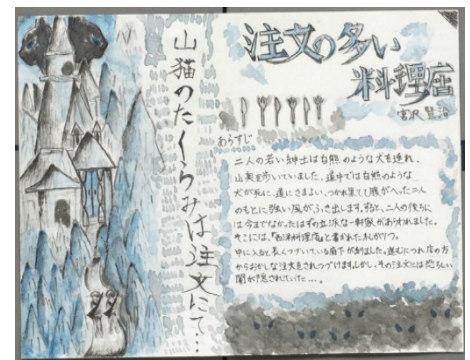 注文の多い
料理店
宮沢賢治
山猫のたくらみは注文にて…
あらすじ
二人の若い紳士は白熊のような犬を連れ、
山奥を歩いていました。道中では白熊のような
犬が死に、道にさまよい、つかれ果てても腹がへった二人
のもとに強い風がふき出します。すると、二人の後ろに
は今までなかったはずの立派な一軒家があらわれました。
そこには、『西洋料理店』と書かれたふしがつ。
中に入ると長くつづいている廊下がありました。進むにつれ店の方
からおかしな注文をされつづけます。しかし、その注文には恐ろしい
闇が隠されていた…。